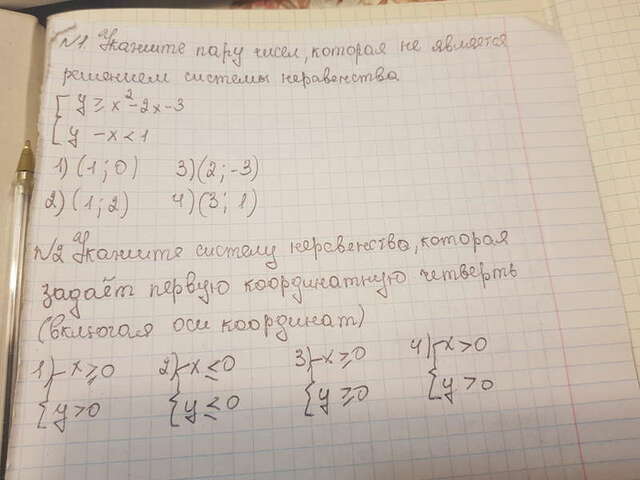 №1 Укажите пару чисел, которая не является
решением системы неравенства
{ y ≥ x² - 2x - 3
{ y - x < 1
1) (1; 0) 3) (2; -3)
2) (1; 2) 4) (3; 1)
№2 Укажите систему неравенство, которая
задаёт первую координатную четверть
(включая оси координат)
1) { -x ≥ 0 2) { -x ≤ 0 3) { -x ≥ 0 4) { -x > 0
{ y > 0 { y ≤ 0 { y ≥ 0 { y > 0